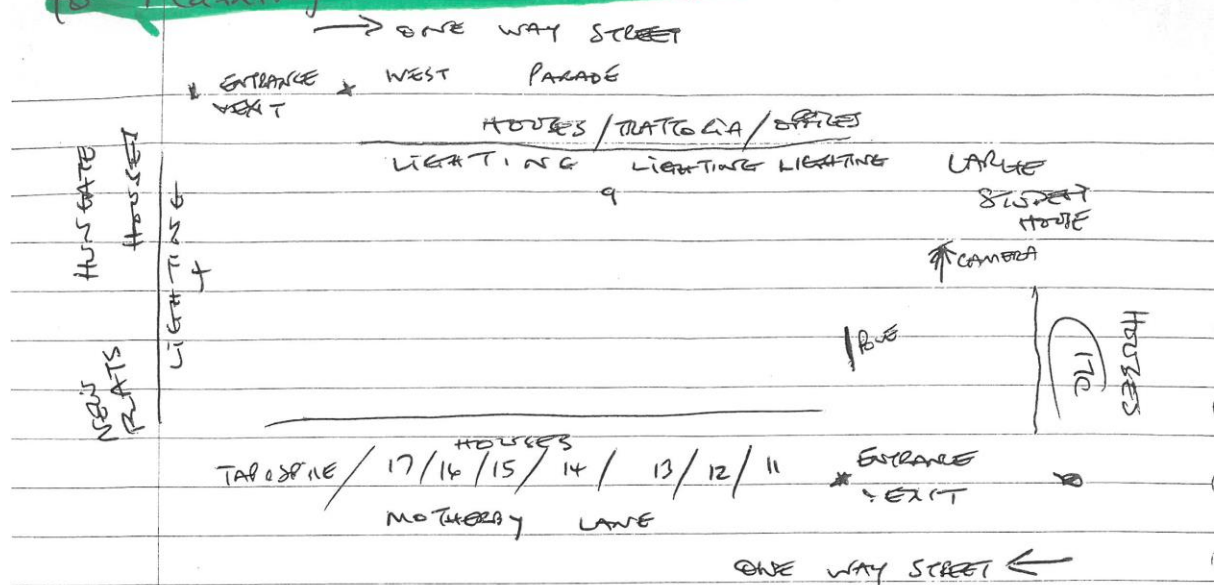 → ONE WAY STREET
ENTRANCE WEST PARADE
EXIT
HOUSES / TRATTORIA / OFFICES
LIGHTING LIGHTING LIGHTING LARGE
9 STUDENT
HOUSE
HUNGATE
HOUSES
LIGHTING
CAMERA
NEW
FLATS
POLE
170
HOUSES
HOUSES
17/16/15/14/ 13/12/11 ENTRANCE
EXIT
MOTHERBY LANE
ONE WAY STREET ←